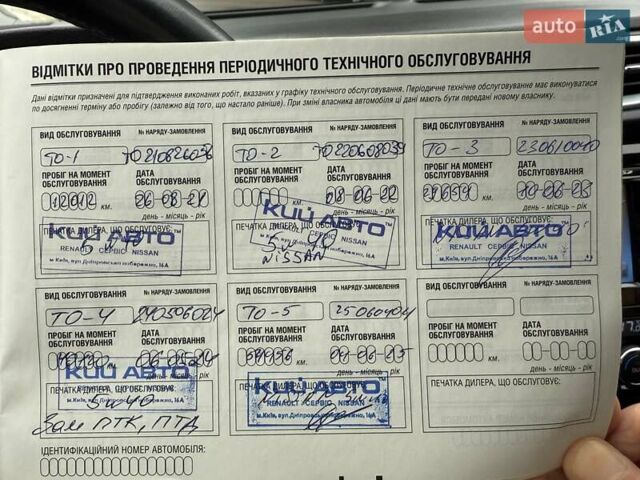 auto RIA
ВІДМІТКИ ПРО ПРОВЕДЕННЯ ПЕРІОДИЧНОГО ТЕХНІЧНОГО ОБСЛУГОВУВАННЯ
Дані відмітки призначені для підтвердження виконаних робіт, вказаних у графіку технічного обслуговування. Періодичне технічне обслуговування має виконуватися
по досягненні терміну або пробігу (залежно від того, що настало раніше). При зміні власника автомобіля ці дані мають бути передані новому власнику.
ВИД ОБСЛУГОВУВАННЯ № НАРЯДУ-ЗАМОВЛЕННЯ
ТО-1
ПРОБІГ НА МОМЕНТ ОБСЛУГОВУВАННЯ
ДАТА ОБСЛУГОВУВАННЯ
км. 26-08-21
день - місяць - рік
КИЙ АВТО
RENAULT СЕРВІС NISSAN
м.Київ, вул.Дніпровська набережно, 16А
ВИД ОБСЛУГОВУВАННЯ № НАРЯДУ-ЗАМОВЛЕННЯ
ТО-2
ПРОБІГ НА МОМЕНТ ОБСЛУГОВУВАННЯ
ДАТА ОБСЛУГОВУВАННЯ
км. 08-06-22
день - місяць - рік
КИЙ АВТО
RENAULT СЕРВІС NISSAN
NISSAN
ВИД ОБСЛУГОВУВАННЯ № НАРЯДУ-ЗАМОВЛЕННЯ
ТО-3
ПРОБІГ НА МОМЕНТ ОБСЛУГОВУВАННЯ
ДАТА ОБСЛУГОВУВАННЯ
км. 10-06-23
день - місяць - рік
ПЕЧАТКА ДИЛЕРА, ЩО ОБСЛУГОВУЄ:
КИЙ АВТО
RENAULT СЕРВІС NISSAN
м.Київ, вул.Дніпровська набережно, 16А
ВИД ОБСЛУГОВУВАННЯ № НАРЯДУ-ЗАМОВЛЕННЯ
ТО-4 240506024
ПРОБІГ НА МОМЕНТ ОБСЛУГОВУВАННЯ
ДАТА ОБСЛУГОВУВАННЯ
КИЙ АВТО
ПЕЧАТКА ДИЛЕРА, ЩО ОБСЛУГОВУЄ:
RENAULT СЕРВІС NISSAN
5w40
Зам ПТК, ПТД
ВИД ОБСЛУГОВУВАННЯ № НАРЯДУ-ЗАМОВЛЕННЯ
ТО-5 25060404
ПРОБІГ НА МОМЕНТ ОБСЛУГОВУВАННЯ
ДАТА ОБСЛУГОВУВАННЯ
км. 04-06-25
день - місяць - рік
ПЕЧАТКА ДИЛЕРА, ЩО ОБСЛУГОВУЄ:
КИЙ АВТО
RENAULT СЕРВІС NISSAN
м.Київ, вул.Дніпровська набережно, 16А
ВИД ОБСЛУГОВУВАННЯ № НАРЯДУ-ЗАМОВЛЕННЯ
ПРОБІГ НА МОМЕНТ ОБСЛУГОВУВАННЯ
ДАТА ОБСЛУГОВУВАННЯ
км.
день - місяць - рік
ПЕЧАТКА ДИЛЕРА, ЩО ОБСЛУГОВУЄ:
ІДЕНТИФІКАЦІЙНИЙ НОМЕР АВТОМОБІЛЯ: